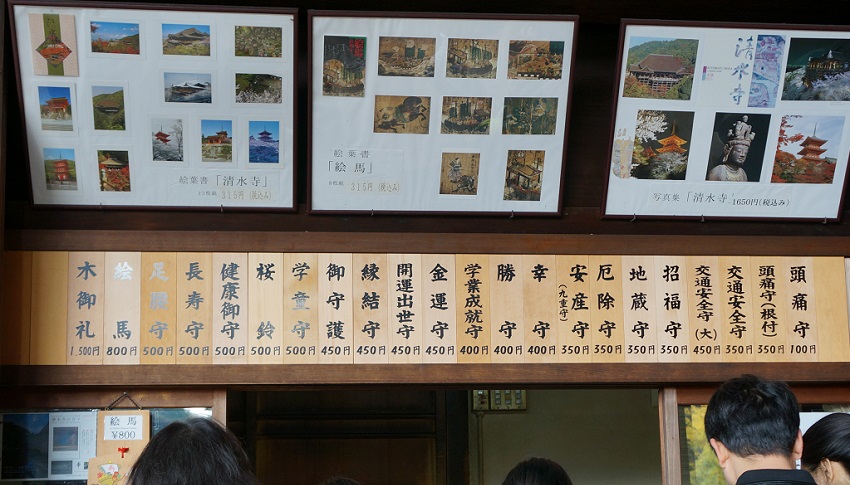 絵葉書「清水寺」
12枚組 315円(税込み)
絵葉書
「絵馬」
8枚組 315円(税込み)
清水寺
写真集「清水寺」-1650円(税込み)
頭痛守 100円
頭痛守(根付) 350円
交通安全守 350円
交通安全守(大) 450円
招福守 350円
地蔵守 350円
厄除守 350円
安産守(九重守) 350円
幸守 400円
勝守 400円
学業成就守 400円
金運守 450円
開運出世守 450円
縁結守 450円
御守護 450円
学童守 500円
桜鈴 500円
健康御守 500円
長寿守 500円
足腰守 500円
絵馬 800円
木御札 1,500円
絵馬
¥800